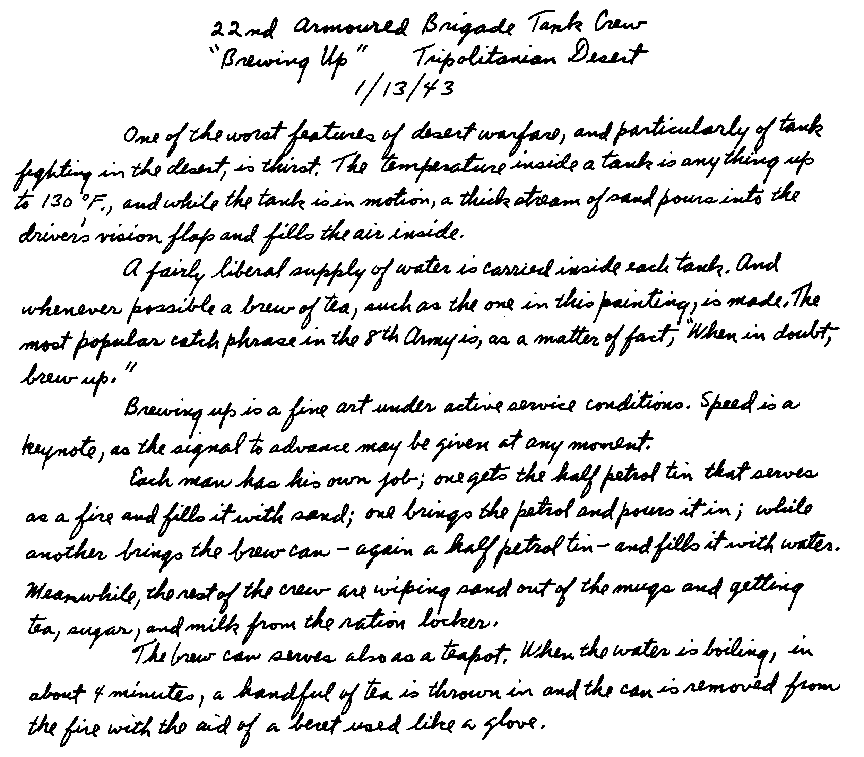 22nd Armoured Brigade Tank Crew
"Brewing Up" Tripolitanian Desert
1/13/43
One of the worst features of desert warfare, and particularly of tank
fighting in the desert, is thirst. The temperature inside a tank is anything up
to 130°F., and while the tank is in motion, a thick stream of sand pours into the
driver's vision flap and fills the air inside.
A fairly liberal supply of water is carried inside each tank. And
whenever possible a brew of tea, such as the one in this painting, is made. The
most popular catch phrase in the 8th Army is, as a matter of fact, "When in doubt,
brew up."
Brewing up is a fine art under active service conditions. Speed is a
keynote, as the signal to advance may be given at any moment.
Each man has his own job; one gets the half petrol tin that serves
as a fire and fills it with sand; one brings the petrol and pours it in; while
another brings the brew can - again a half petrol tin - and fills it with water.
Meanwhile, the rest of the crew are wiping sand out of the mugs and getting
tea, sugar, and milk from the ration locker.
The brew can serves also as a teapot. When the water is boiling, in
about 4 minutes, a handful of tea is thrown in and the can is removed from
the fire with the aid of a beret used like a glove.